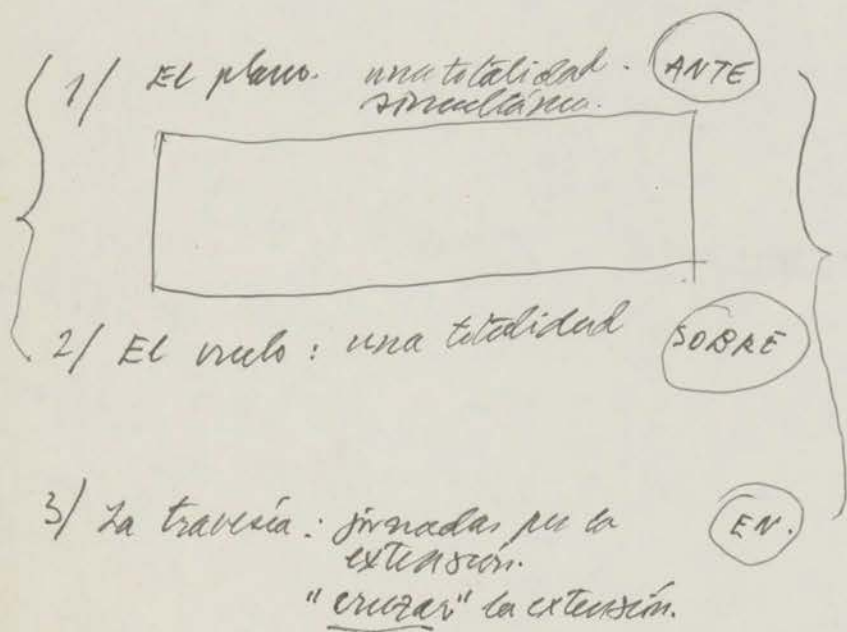 1/ El plano. una totalidad. ANTE
simultánea.
2/ El vuelo: una totalidad SOBRE
3/ La travesía: jornadas por la EN.
extensión.
"cruzar" la extensión.